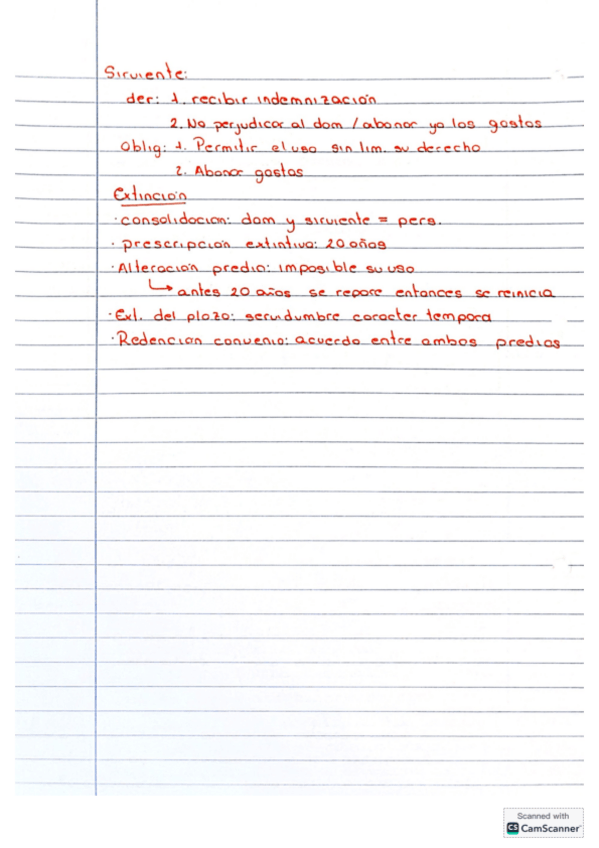 Sirviente:
der: 1. recibir indemnización
2. No perjudicar al dom / abonar ya los gastos
Oblig: 1. Permitir el uso sin lim. su derecho
2. Abonar gastos
Extinción
· consolidacion: dom y sirviente = pers.
· prescripción extintiva: 20 años
· Alteración predio: imposible su uso
↳ antes 20 años se repare entonces se reinicia
· Ext. del plazo: serundumbre caracter tempora
· Redencion convenio: acuerdo entre ambos predios
Scanned with
CS CamScanner